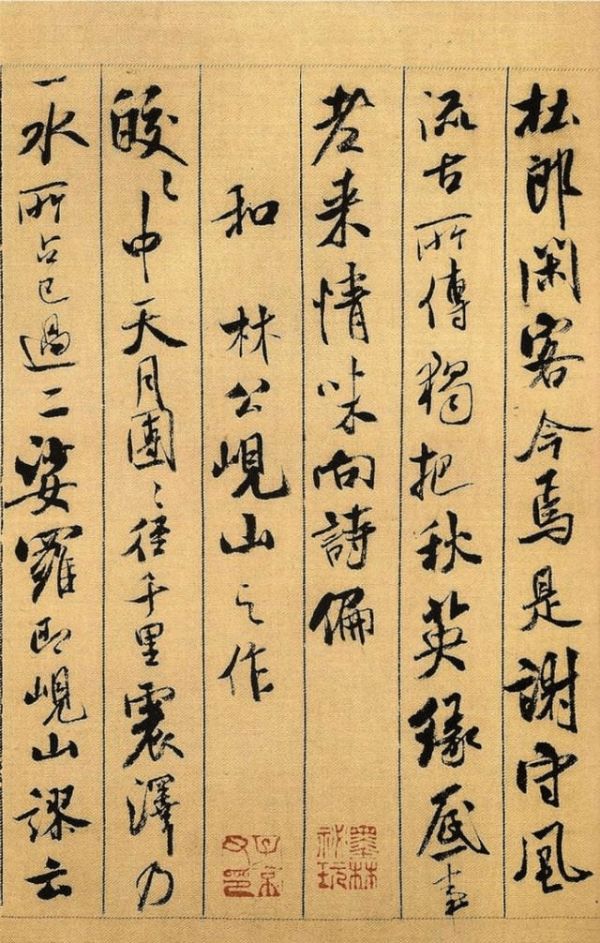 杜郎閑客今焉是謝守風
流古所傳獨把秋英緣底事
老来情味向詩偏
和 林公峴山之作
皎〻中天月團〻徑千里震澤乃
一水所占已過二娑羅即峴山謬云
墨林祕玩
子京父印